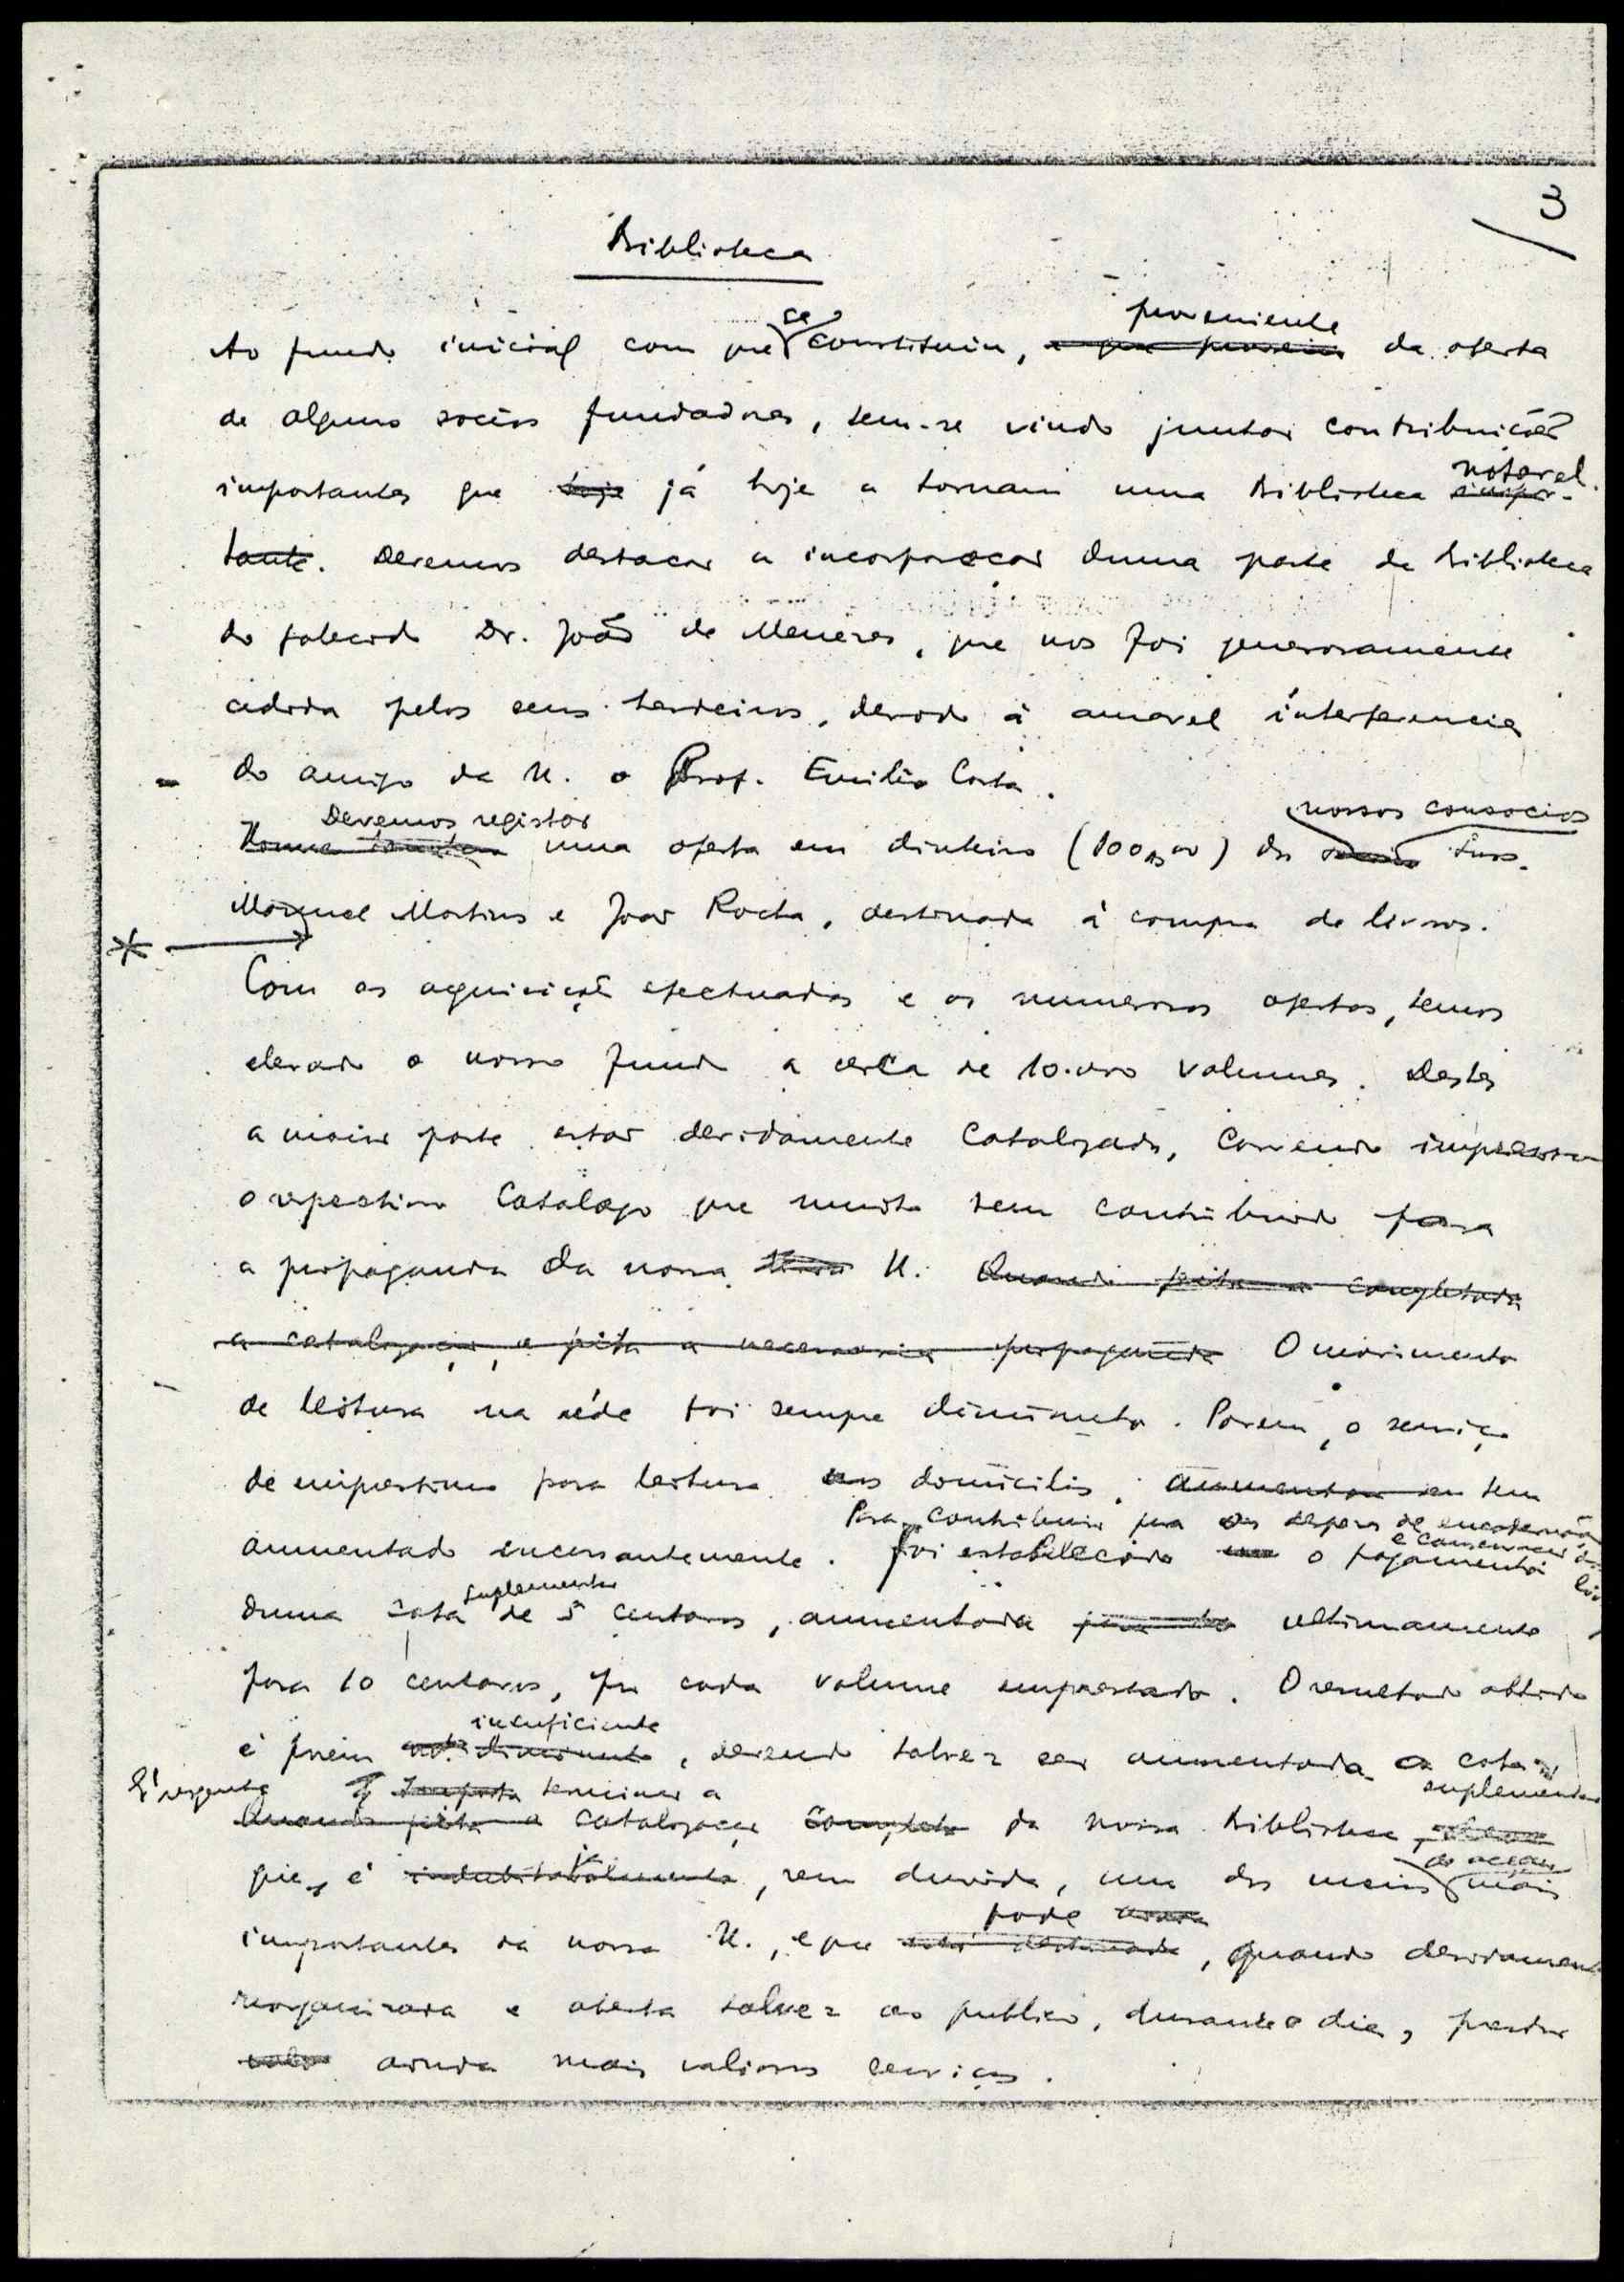 3
Biblioteca
Ao fundo inicial com que se constituiu, proveniente da oferta
de alguns socios fundadores, tem-se vindo juntar contribuições
importantes que hoje já hoje a tornam uma Biblioteca notavel. impor-
tante. Devemos destacar a incorporação duma parte da Biblioteca
do falecido Dr. João de Menezes, que nos foi generosamente
cedida pelos seus herdeiros, devido á amavel interferencia
do amigo da U. o Prof. Emilio Costa.
Devemos registar nossos consocios
Houve tambem uma oferta em dinheiro (100$00) dos Snrs.
Manuel Martins e João Rocha, destinada á compra de livros.
*
Com as aquisições efectuadas e as numerosas ofertas, temos
elevado o nosso fundo a cerca de 10.000 volumes. Destes
a maior parte estão devidamente catalogados, correndo impresso
o respectivo Catalogo que muito tem contribuido para
a propaganda da nossa U. Quando feita a completada
a catalogação, e feita a necessaria propaganda O movimento
de leitura na séde foi sempre diminuto. Porem, o serviço
de emprestimo para leitura nos domicilios, aumentou tem
Para contribuir para as despesas de encadernação
e conservação dos
aumentado incessantemente. Foi estabelecido o pagamento
suplementar
duma cota de 5 centavos, aumentada ultimamente
para 10 centavos, por cada volume emprestado. O resultado obtido
insuficiente
é porém diminuto, devendo talvez ser aumentada a cota
suplementar
É urgente terminar a
Quando feita a catalogação completa da nossa Biblioteca,
de acção
que, é indubitavelmente, sem duvida, um dos meios mais
pode
importantes da nossa U., e que está destinada, quando devidamente
reorganizada e aberta talvez ao publico, durante o dia, prestar
ainda mais valiosos serviços.